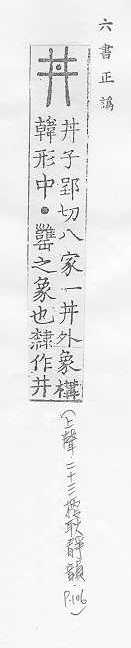 六書正譌
丼
丼子郢切八家一丼外象構
韓形中·罋之象也隸作井
(上聲·二十三梗耿靜韻 P.106)